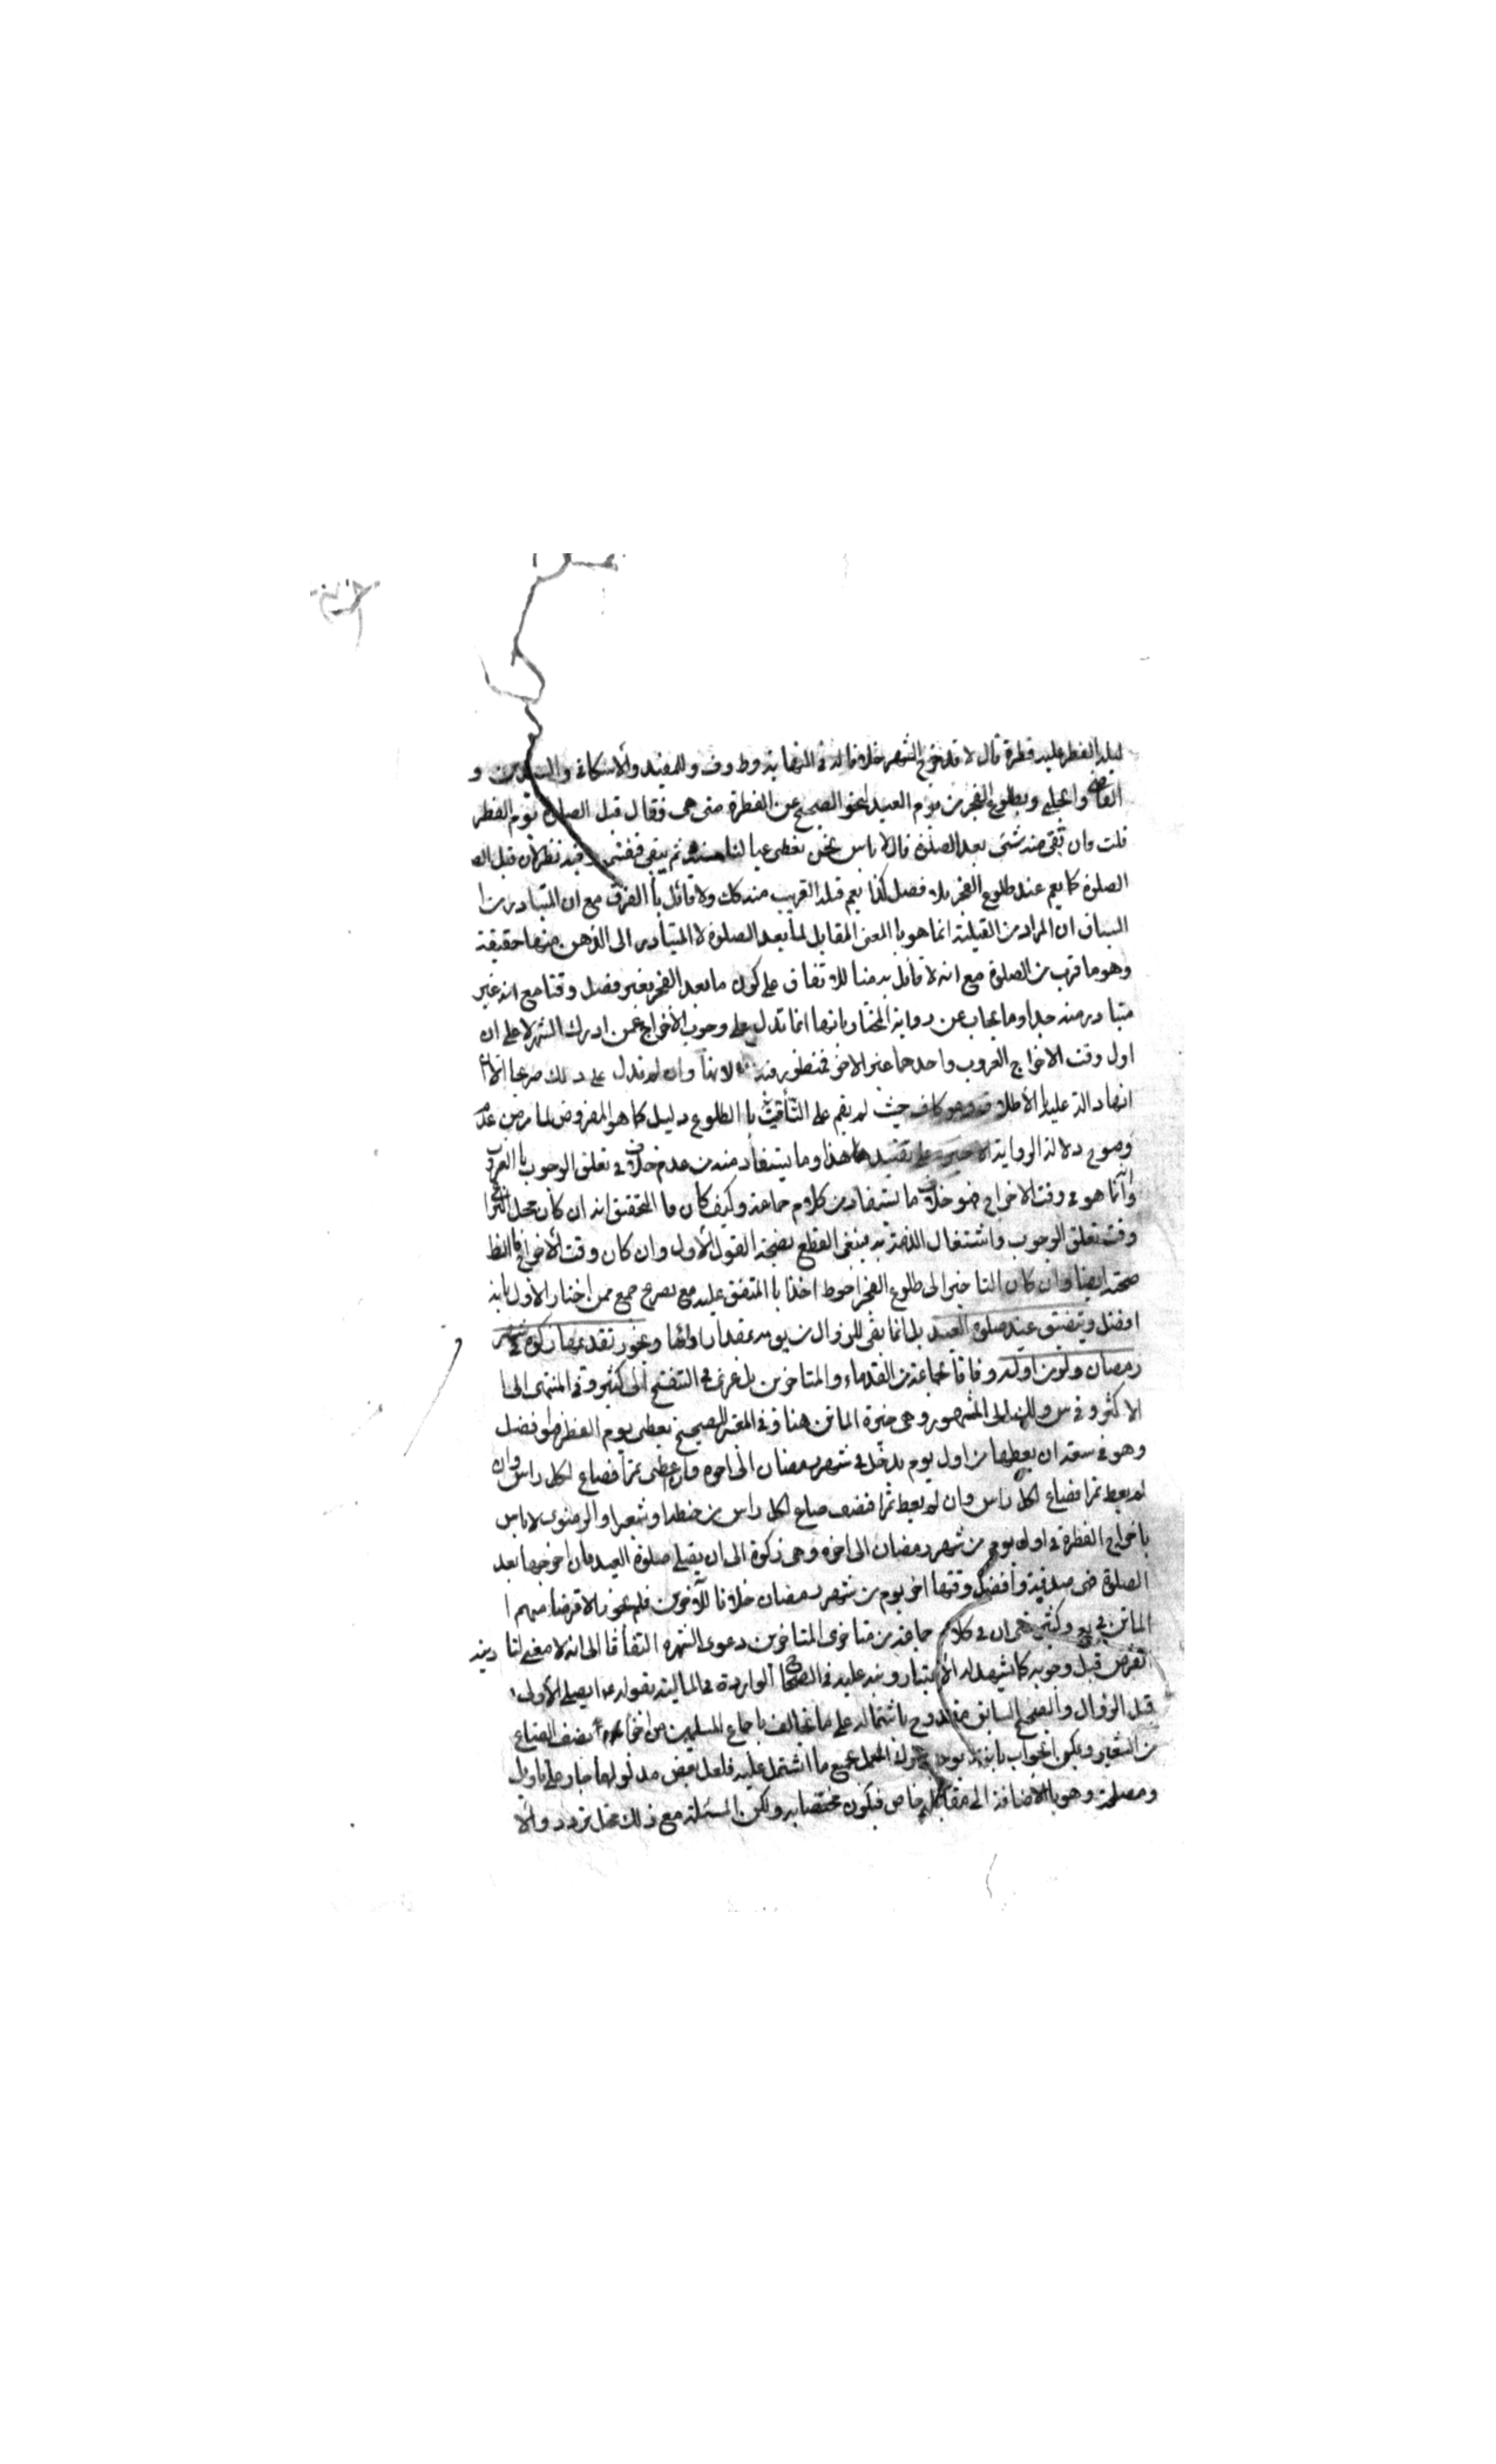 ليلة الفطر عليه فطرة قال لا قد خرج الشهر خلافا له في النهاية وط وف وللمفيد والاسكافي و
القاضي والحلي وبطلوع الفجر من يوم العيد لنحو الصحيح عن الفطرة متى هي فقال قبل الصلوة يوم الفطر
قلت فان بقي منه شئ بعد الصلوة قال لا باس نحن نعطي عيالنا منه ثم يبقى فنقسمه وفيه نظر لان قبل
الصلوة كما يعم عند طلوع الفجر بلا فصل كذا يعم قبله القريب منه كك ولا قائل بالفرق مع ان المتبادر من
السياق ان المراد من القبلية انما هو بالمعنى المقابل لما بعد الصلوة لا المتبادر الى الذهن منها حقيقة
وهو ما قرب من الصلوة مع انه لا قائل به منا للاتفاق على كون ما بعد الفجر بغير فصل وقتا مع انه غير
متبادر منه جدا وما يجاب عن رواية المختار بانها انما تدل على وجوب الاخراج عمن ادرك الشهر لا على ان
اول وقت الاخراج الغروب واحدهما غير الاخر فمنظور فيه لانها وان لم تدل على ذلك صريحا الا
انها دالة عليه بالاطلاق وهو كاف حيث لم يقم على التأقيت با الطلوع دليل كما هو المفروض لما مر من عدم
وضوح دلالة الرواية الاخيرة على تقييد هذا وما يستفاد منه من عدم خلاف في تعلق الوجوب با الغروب
وانما هو في وقت الاخراج فهو خلاف ما يستفاد من كلام جماعة وكيف كان فا التحقيق انه ان كان محل النزاع
وقت تعلق الوجوب واشتغال الذمة به فينبغي القطع بصحة القول الاول وان كان وقت الاخراج فالظ
صحته ايضا وان كان التاخير الى طلوع الفجر احوط اخذا با المتفق عليه مع تصريح جمع ممن اختار الاول بانه
افضل ويتضيق عند صلوة العيد بل انما بقي للزوال من يومه بمقدار ادائها ويجوز تقديمها زكوة في شهر
رمضان ولو من اوله وفاقا لجماعة من القدماء والمتاخرين بل عزي في التنقيح الى كثير وفي المنتهى الى
الاكثر وفي س ولك الى المشهور وهي خيرة الماتن هنا وفي المعتبر للصحيح يعطي يوم الفطر فهو افضل
وهو في سعة ان يعطيها من اول يوم يدخل في شهر رمضان الى اخره فان اعطى تمرا فصاع لكل راس وان
لم يعط تمرا فصاع لكل راس وان لم يعط تمرا فنصف صاع لكل راس من حنطة او شعير والرضوي لا باس
باخراج الفطرة في اول يوم من شهر رمضان الى اخره وهي زكوة الى ان يصلي صلوة العيد فان اخرجها بعد
الصلوة فهي صدقة وافضل وقتها اخر يوم من شهر رمضان خلافا للآخرين فلم يجوز الا قرضا منهم
الماتن في يع وكثير حتى ان في كلام جماعة من متاخري المتاخرين دعوى الشهرة التفاتا الى انه لا معنى لتا دية
الفرض قبل وجوبه كما يشهد له الاعتبار ونبه عليه في الصحاح الواردة في المالية بقوله ع ايصلي الاولى
قبل الزوال والصحيح السابق مقدوح باشتماله على ما يخالف باجماع المسلمين من اجزاء نصف الصاع
من الشعير ويمكن الجواب بانه لا يوجب ترك العمل بجميع ما اشتمل عليه فلعل بعض مدلولها جار على تاويل
ومصلحة وهو بالاضافة الى مقابله خاص فيكون مختصا به ولكن المسئلة مع ذلك محل تردد والا